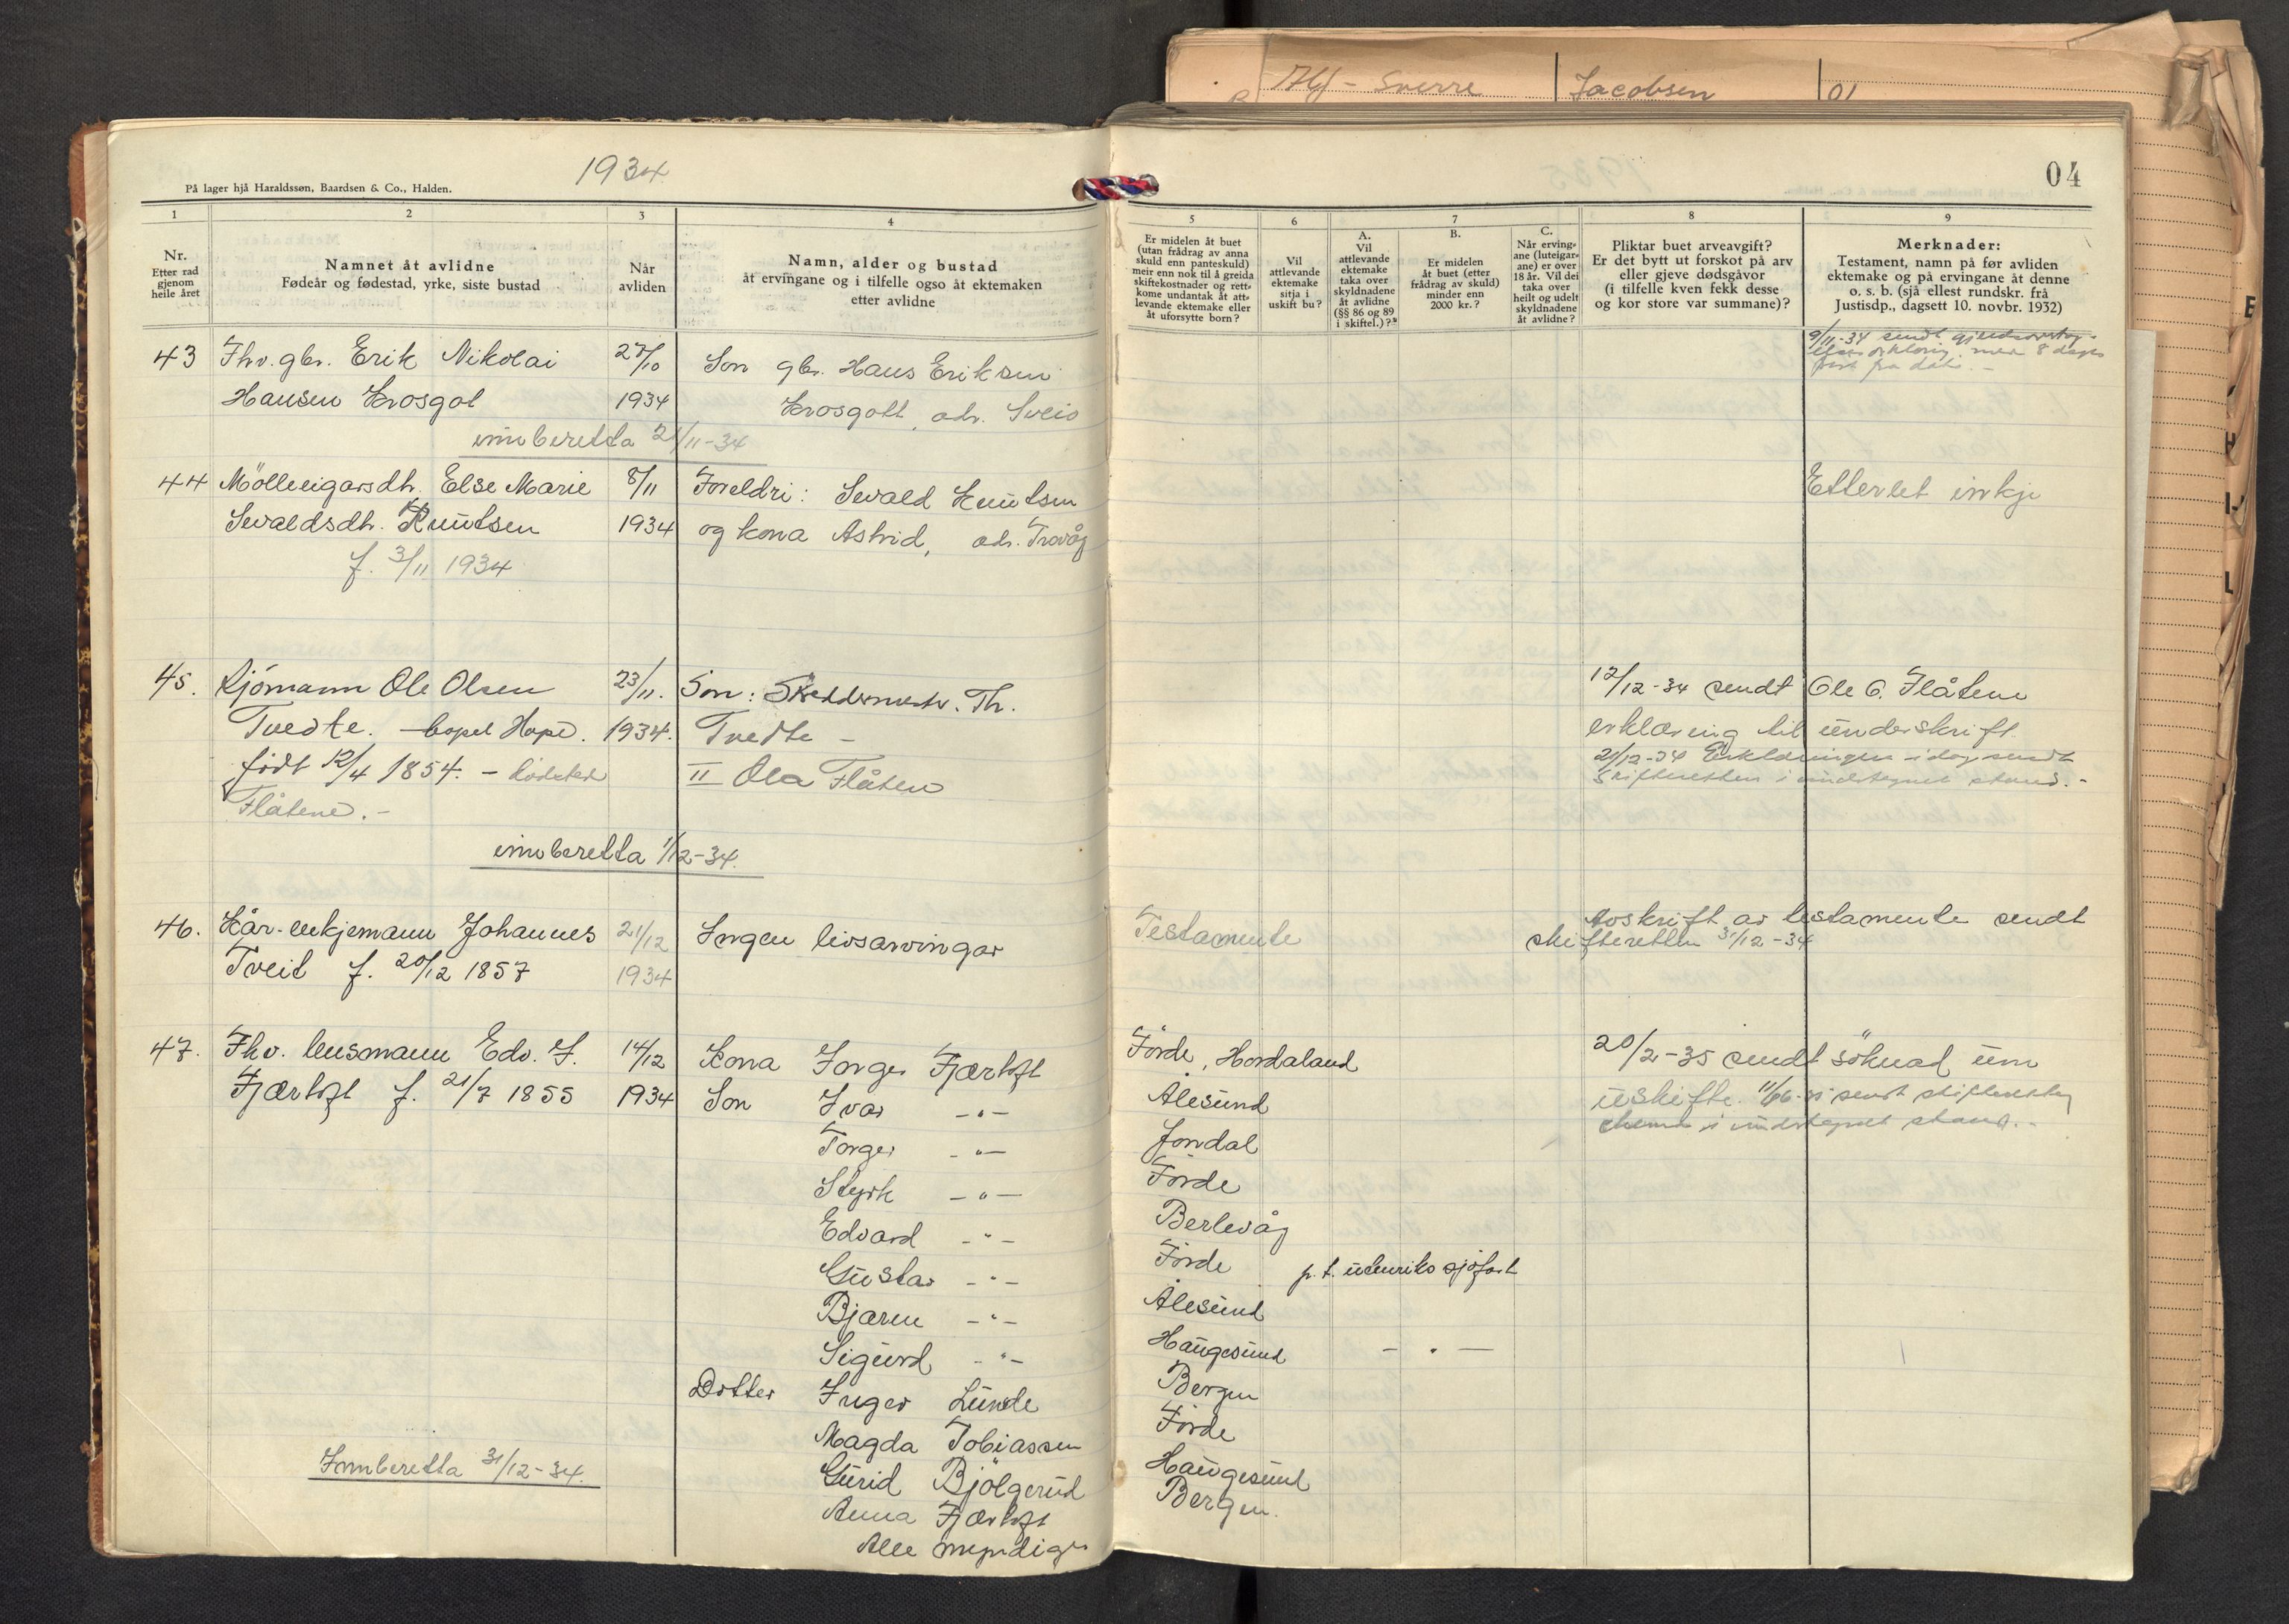 Alf - Sverre Jacobsen
1934
04
På lager hjå Haraldssøn, Baardsen & Co., Halden.
1 2 3 4 5 6 7 8 9
Nr.
Etter rad
gjenom
heile året
Namnet åt avlidne
Fødeår og fødestad, yrke, siste bustad
Når
avliden
Namn, alder og bustad
åt ervingane og i tilfelle ogso åt ektemaken
etter avlidne
Er midelen åt buet
(utan frådrag av anna
skuld enn panteskuld)
meir enn nok til å greida
skiftekostnader og rett-
kome undantak åt att-
levande ektemake eller
åt uforsytte born?
Vil
attlevande
ektemake
sitja i
uskift bu?
A.
Vil
attlevande
ektemake
taka over
skyldnadene
åt avlidne
(§§ 86 og 89
i skiftel.)?*
B.
Er midelen
åt buet (etter
frådrag av skuld)
minder enn
2000 kr.?
C.
Når erving-
ane (luteigar-
ane) er over
18 år. Vil dei
taka over
heilt og udelt
skyldnadene
åt avlidne?
Pliktar buet arveavgift?
Er det bytt ut forskot på arv
eller gjeve dødsgåvor
(i tilfelle kven fekk desse
og kor store var summane)?
Merknader:
Testament, namn på før avliden
ektemake og på ervingane åt denne
o. s. b. (sjå ellest rundskr. frå
Justisdp., dagsett 10. novbr. 1932)
43 Fhv. gbr. Erik Nikolai 27/10 Son gbr. Hans Eriksen
9/11-34 sendt
med 8 dages
frist fra dato. -
Hansen Krosgot 1934 Krosgott, adr. Sveio
innberetta 21/11-34
44 Mölleeigarsdtr. Else Marie 8/11 Foreldri: Sevald Knutsen Etterlet inkje
Sevaldsdtr. Knutsen 1934 og kona Astrid, adr. Trovåg
f. 3/11 1934
45. Sjömann Ole Olsen 23/11. Son: Skreddermester. Th. 12/12-34 sendt Ole O. Flåtene
Tvedte. - bopel Hope. 1934. Tvedte - erklæring til underskrift
født 12/4 1854. - fødested II Ola Flåten 21/12-34 Erklæringen idag sendt
Flåtene. - skifteretten i underteignet stand. -
innberetta 1/12-34.
46. Kår-enkjemann Johannes 21/12 Ingen livsarvingar Testamente Avskrift av testamente sendt
skifteretten 31/12-34
Tveit f. 20/12 1857 1934
47. Fhv. lensmann Edv. J. 14/12 Kona Inger Fjærtoft Förde, Hordaland 20/2-35 sendt söknad um
Fjærtoft f. 21/7 1855 1934 Son Ivar -"- Ålesund uskifte. sendt skifteretten
Torger -"- Jondal i underteignet stand. -
Styrk -"- Förde
Edvard -"- Berlevåg
Gustav -"- Förde p. t. utenriks sjöfart
Bjarne -"- Ålesund
Sigurd -"- Haugesund - " -
Dotter Inger Lunde Bergen
Magda Tobiassen Förde
Innberetta 31/12-34.
Gurid Bjölgerud Haugesund
Anna Fjærtoft Bergen.
Alle myndige